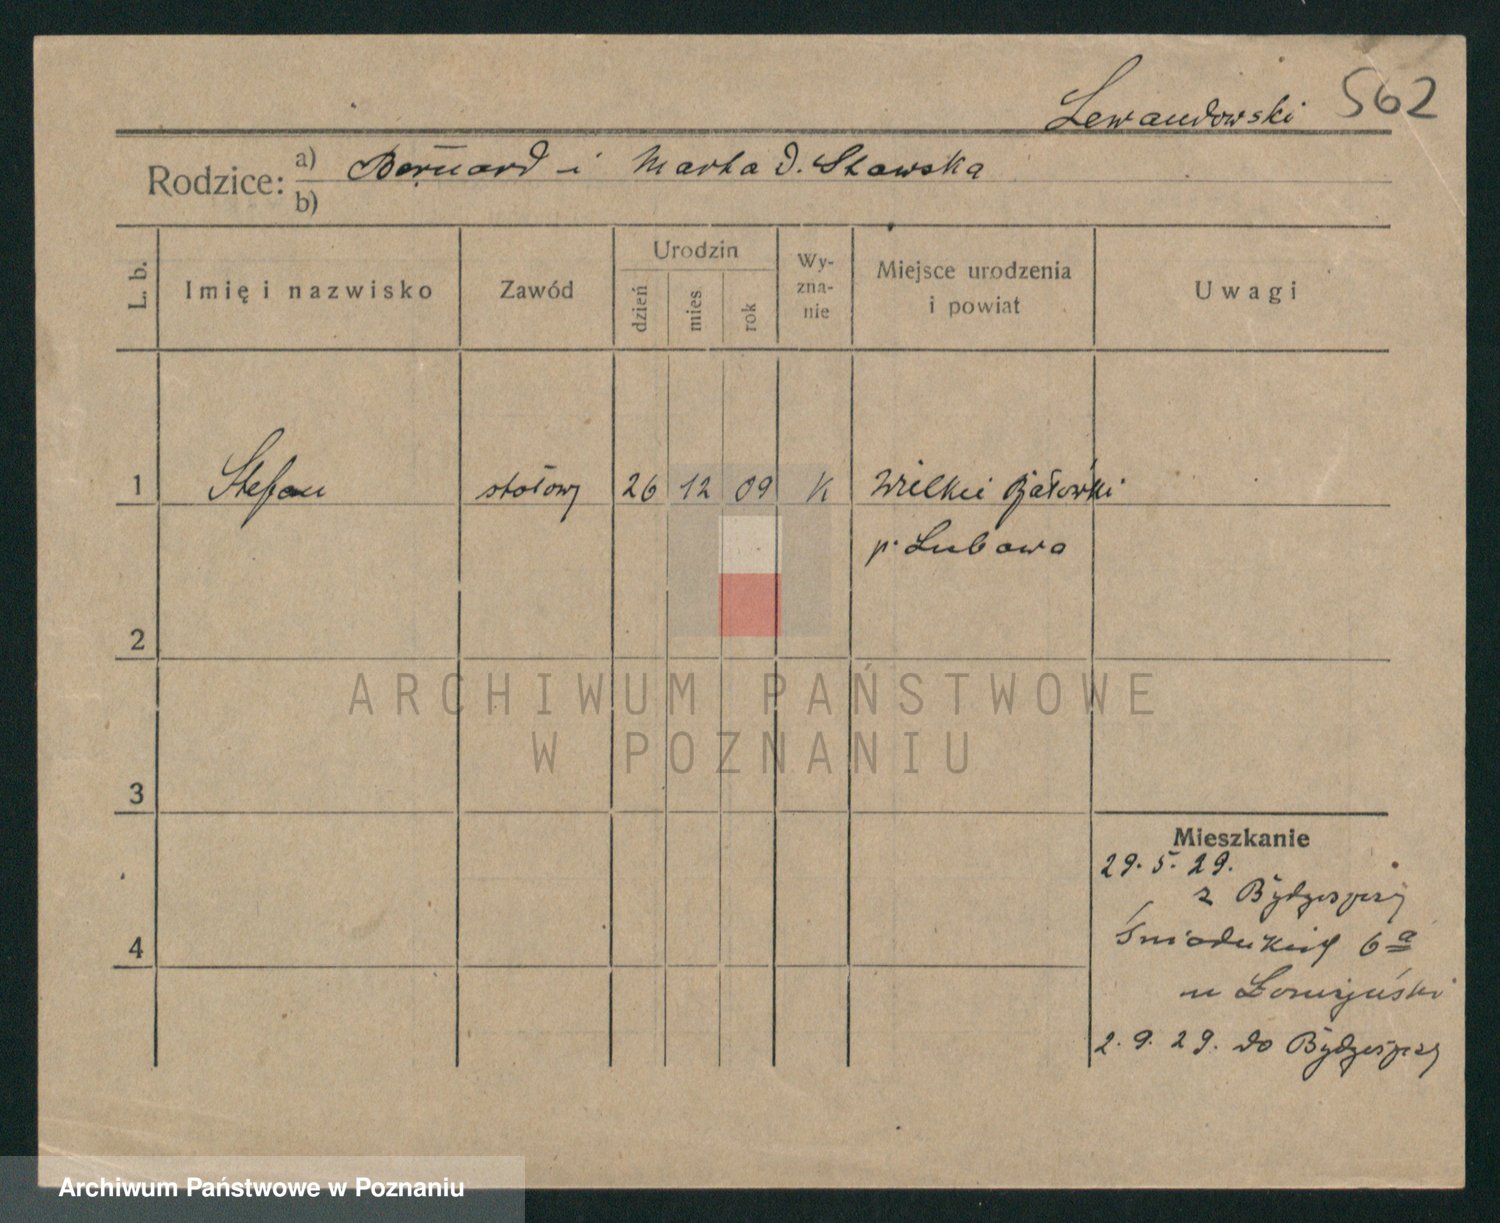 Lewandowski 562
Rodzice: a) Bernard i Marta d. Stawska
b)
L. b. Imię i nazwisko Zawód Urodzin dzień mies. rok Wy-zna-nie Miejsce urodzenia i powiat Uwagi
1 Stefan stołowy 26 12 09 K Wielkie Bałówki
p. Lubawa
2
ARCHIWUM PAŃSTWOWE
W POZNANIU
3
Mieszkanie
29. 5. 29.
z Bydgoszczy
4 6a
u
2. 9. 29. do Bydgoszczy
Archiwum Państwowe w Poznaniu